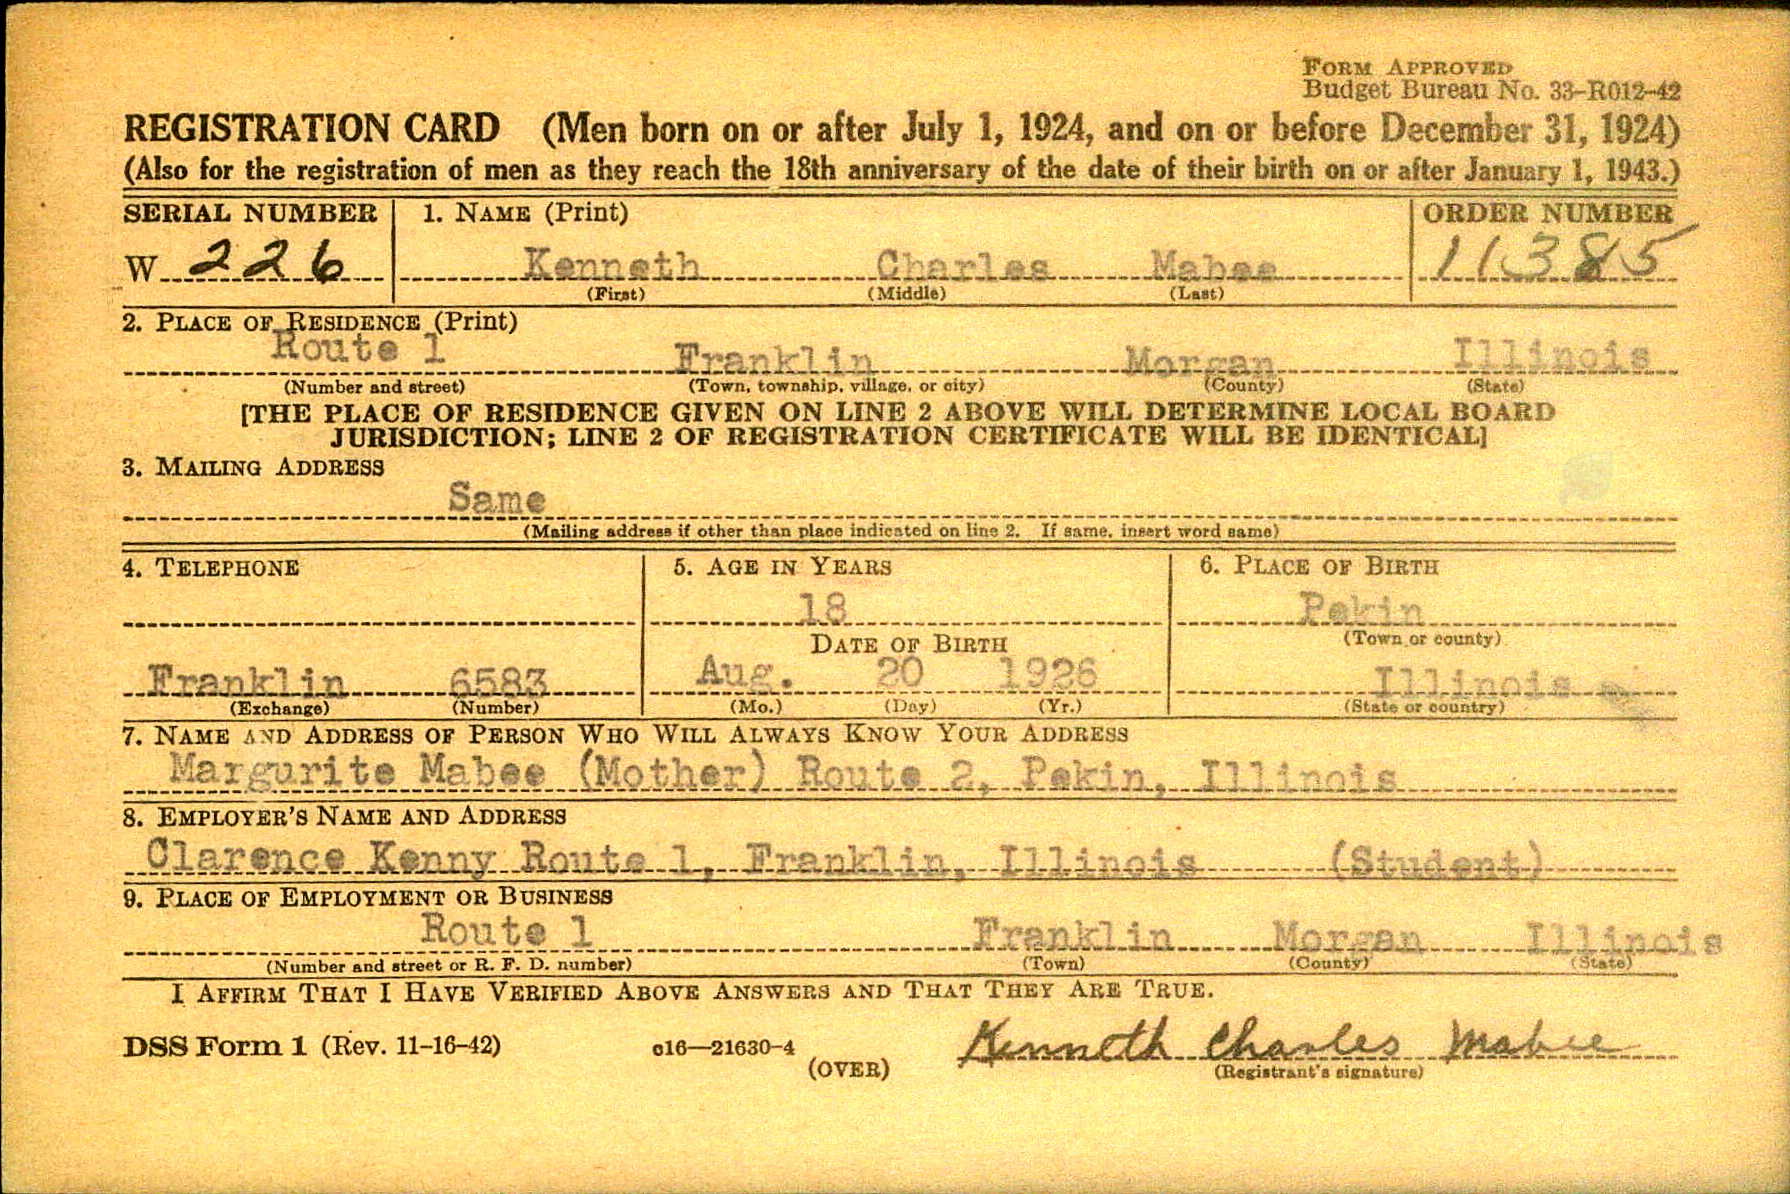 FORM APPROVED
Budget Bureau No. 33-R012-42
REGISTRATION CARD (Men born on or after July 1, 1924, and on or before December 31, 1924)
(Also for the registration of men as they reach the 18th anniversary of the date of their birth on or after January 1, 1943.)
SERIAL NUMBER 1. NAME (Print) ORDER NUMBER
W 226 Kenneth Charles Mabee 11385
(First) (Middle) (Last)
2. PLACE OF RESIDENCE (Print)
Route 1 Franklin Morgan Illinois
(Number and street) (Town, township, village, or city) (County) (State)
[THE PLACE OF RESIDENCE GIVEN ON LINE 2 ABOVE WILL DETERMINE LOCAL BOARD
JURISDICTION; LINE 2 OF REGISTRATION CERTIFICATE WILL BE IDENTICAL]
3. MAILING ADDRESS
Same
(Mailing address if other than place indicated on line 2. If same, insert word same)
4. TELEPHONE 5. AGE IN YEARS 6. PLACE OF BIRTH
18 Pekin
DATE OF BIRTH (Town or county)
Franklin 6583 Aug. 20 1926 Illinois
(Exchange) (Number) (Mo.) (Day) (Yr.) (State or country)
7. NAME AND ADDRESS OF PERSON WHO WILL ALWAYS KNOW YOUR ADDRESS
Margurite Mabee (Mother) Route 2, Pekin, Illinois
8. EMPLOYER'S NAME AND ADDRESS
Clarence Kenny Route 1, Franklin, Illinois (Student)
9. PLACE OF EMPLOYMENT OR BUSINESS
Route 1 Franklin Morgan Illinois
(Number and street or R. F. D. number) (Town) (County) (State)
I AFFIRM THAT I HAVE VERIFIED ABOVE ANSWERS AND THAT THEY ARE TRUE.
DSS Form 1 (Rev. 11-16-42) c16—21630-4 Kenneth Charles Mabee
(OVER) (Registrant's signature)